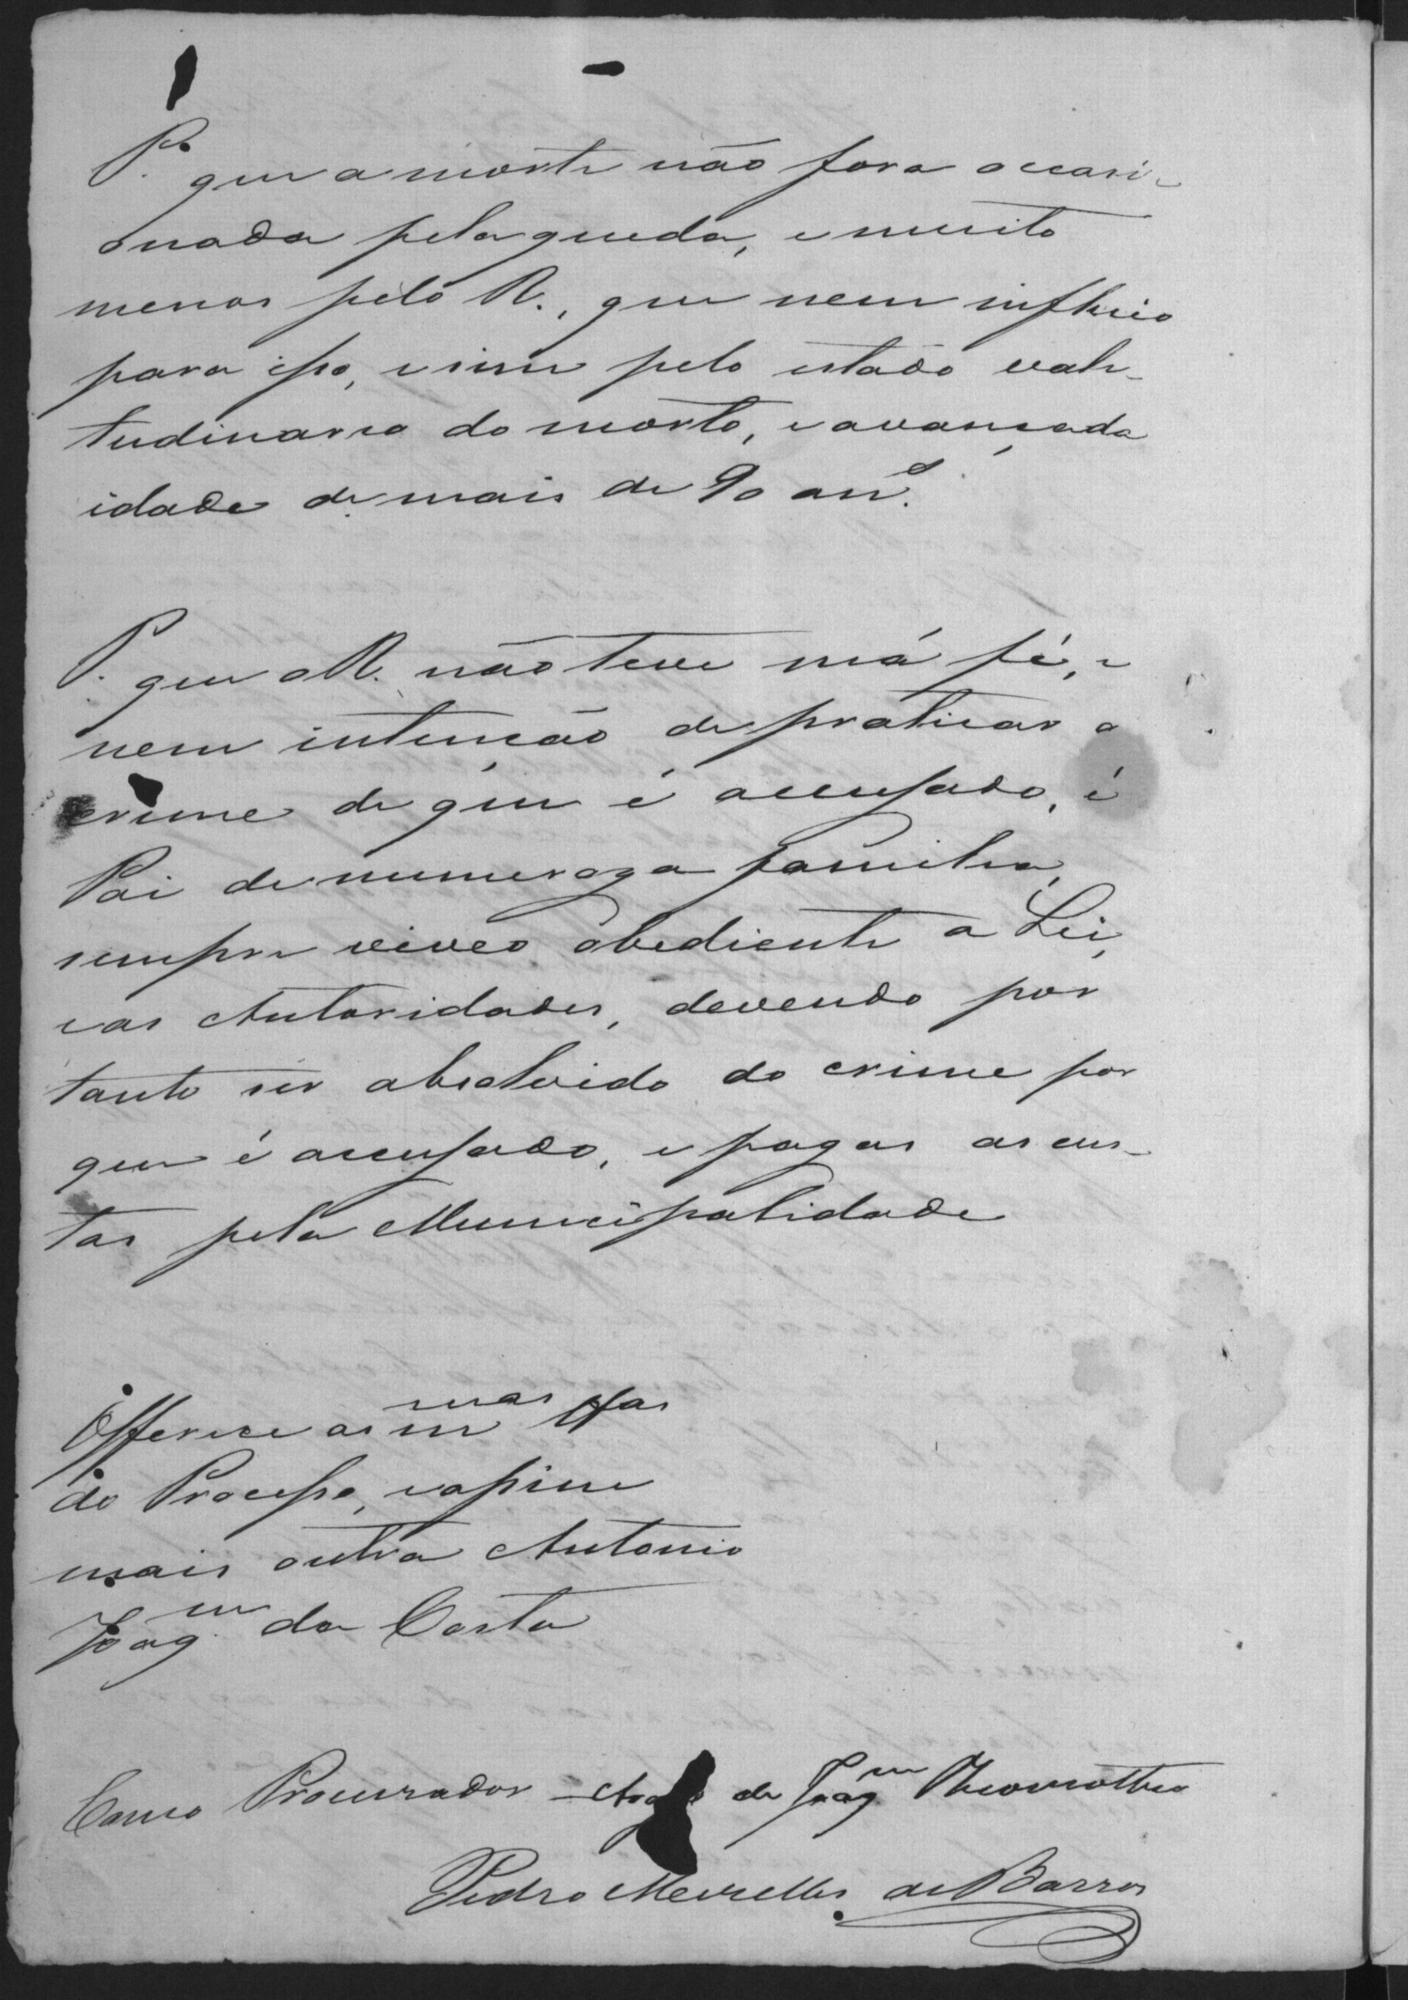 P. que a morte não fora occasi-
onada pela queda, e muito
menos pelo R., que nem influio
para isso, e sim pelo estado vale-
tudinario do morto, e avançada
idade de mais de 90 ann.s
P. que o R. não teve má fé, e
nem intenção de praticar o
crime de que é accusado, é
Pai de numeroza familia,
sempre viveo obediente a Lei,
e as Autoridades, devendo por
tanto ser absolvido do crime por
que é accusado, e pagas as cus-
tas pela Municipalidade
Offerece as m mas
do Processo, e assim
mais outra Antonio
Joaq.m da Costa
Como Procurador de Joaq.m Thimotheo
Pedro Meirelles de Barros